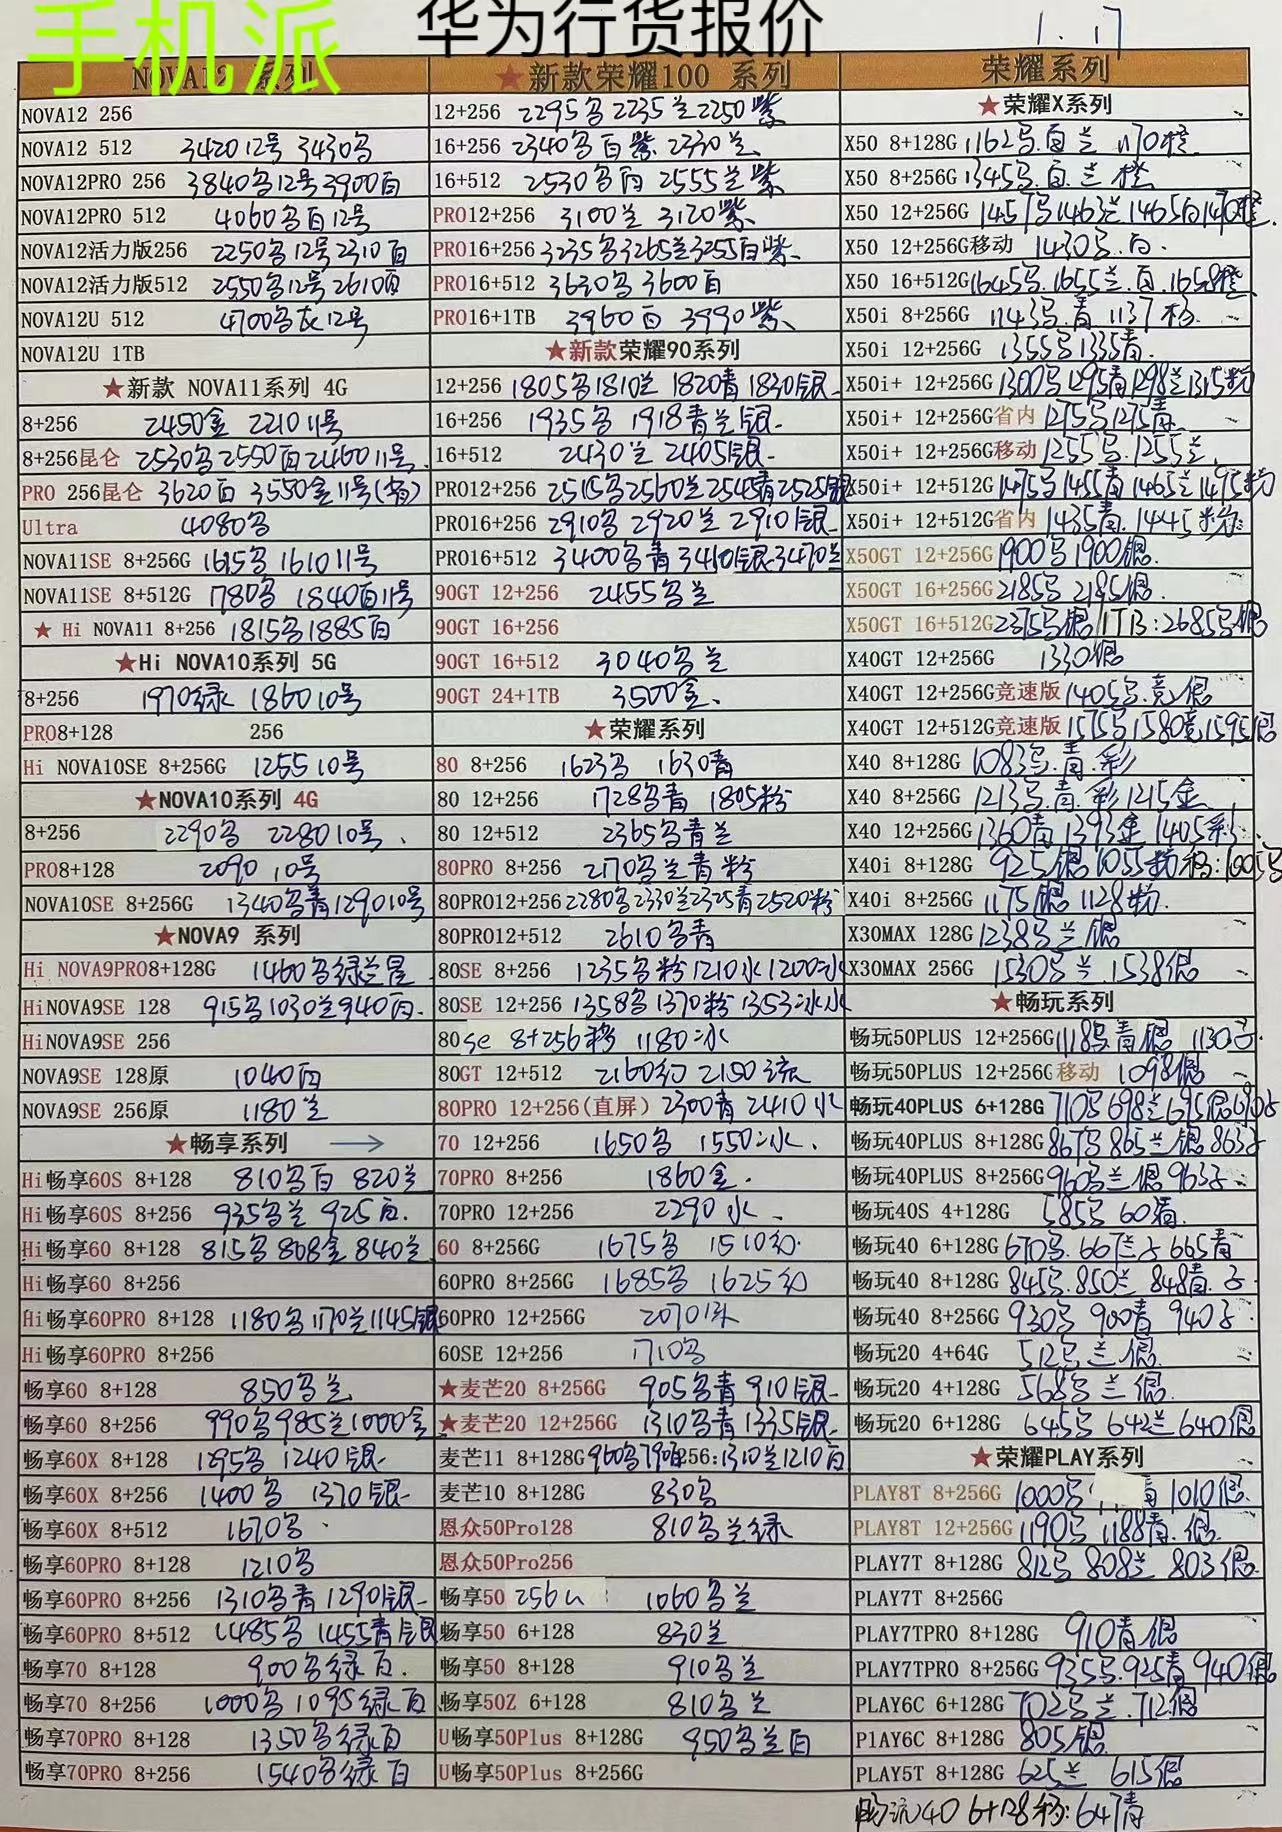 手机派
华为行货报价
1.17
NOVA12 系列
NOVA12 256
NOVA12 512 3420 12号 3430
NOVA12PRO 256 3840 12号 3900白
NOVA12PRO 512 4060 白12号
NOVA12活力版256 2250 12号 2310白
NOVA12活力版512 2550 12号 2610白
NOVA12U 512 4700 灰12号
NOVA12U 1TB
★新款 NOVA11系列 4G
8+256 2450金 2210 11号
8+256昆仑 2530 2550白 2460 11号
PRO 256昆仑 3620白 3550金11号
Ultra 4080
NOVA11SE 8+256G 1615 1610 11号
NOVA11SE 8+512G 1780 1840白11号
★ Hi NOVA11 8+256 1815 1885白
★Hi NOVA10系列 5G
8+256 1970绿 1860 10号
PRO8+128 256
Hi NOVA10SE 8+256G 1255 10号
★NOVA10系列 4G
8+256 2290 2280 10号
PRO8+128 2090 10号
NOVA10SE 8+256G 1340 青 1290 10号
★NOVA9 系列
Hi NOVA9PRO8+128G 1460 绿兰
HiNOVA9SE 128 915 1030兰 940白
HiNOVA9SE 256
NOVA9SE 128原 1040白
NOVA9SE 256原 1180兰
★畅享系列 →
Hi畅享60S 8+128 810 白 820兰
Hi畅享60S 8+256 935 兰 925白
Hi畅享60 8+128 815 808金 840兰
Hi畅享60 8+256
Hi畅享60PRO 8+128 1180 1170兰 1145银
Hi畅享60PRO 8+256
畅享60 8+128 850 兰
畅享60 8+256 990 985兰 1000金
畅享60X 8+128 1295 1240银
畅享60X 8+256 1400 1370银
畅享60X 8+512 1670
畅享60PRO 8+128 1210
畅享60PRO 8+256 1310 青 1290银
畅享60PRO 8+512 1485 1455青银
畅享70 8+128 900 绿白
畅享70 8+256 1000 1095绿白
畅享70PRO 8+128 1350 绿白
畅享70PRO 8+256 1540 绿白
★新款荣耀100 系列
12+256 2295 2235兰 2250紫
16+256 2340 白紫 2330兰
16+512 2530 白 2555兰紫
PRO12+256 3100兰 3120紫
PRO16+256 3235 3265兰 3255白紫
PRO16+512 3630 3600白
PRO16+1TB 3960白 3990紫
★新款荣耀90系列
12+256 1805 1810兰 1820青 1830银
16+256 1935 1918青兰银
16+512 2430兰 2405银
PRO12+256 2515 2560兰 2545青 2525银
PRO16+256 2910 2920兰 2910银
PRO16+512 3400 青 3410银 3470兰
90GT 12+256 2455 兰
90GT 16+256
90GT 16+512 3040 兰
90GT 24+1TB 3500金
★荣耀系列
80 8+256 1623 1630青
80 12+256 1728 青 1805粉
80 12+512 2365 青兰
80PRO 8+256 2170 兰青粉
80PRO12+256 2280 2330兰 2325青 2520粉
80PRO12+512 2610 青
80SE 8+256 1235 粉 1210水 1200冰
80SE 12+256 1358 1370粉 1353冰水
80se 8+256移 1180冰
80GT 12+512 2160幻 2150流
80PRO 12+256(直屏) 2300青 2410水
70 12+256 1650 1550冰
70PRO 8+256 1860金
70PRO 12+256 2290水
60 8+256G 1675 1510幻
60PRO 8+256G 1685 1625幻
60PRO 12+256G 2070
60SE 12+256 1710
★麦芒20 8+256G 905 青 910银
★麦芒20 12+256G 1310 青 1335银
麦芒11 8+128G 960 790 256:1310兰 1210白
麦芒10 8+128G 830
恩众50Pro128 810 兰绿
恩众50Pro256
畅享50 256G 1060 兰
畅享50 6+128 830兰
畅享50 8+128 910 兰
畅享50Z 6+128 810 兰
U畅享50Plus 8+128G 950 兰白
U畅享50Plus 8+256G
荣耀系列
★荣耀X系列
X50 8+128G 1162 白兰 1170橙
X50 8+256G 1345 白兰橙
X50 12+256G 1457 1463兰 1465白 1470橙
X50 12+256G移动 1430 白
X50 16+512G 1645 1655兰白 1658橙
X50i 8+256G 1143 青 1137
X50i 12+256G 1355 1335青
X50i+ 12+256G 1300 1295青 1298兰 1315粉
X50i+ 12+256G省内 1275 1275青
X50i+ 12+256G移动 1255 1255兰
X50i+ 12+512G 1475 1455青 1465兰 1495粉
X50i+ 12+512G省内 1435青 1445粉
X50GT 12+256G 1900 1900银
X50GT 16+256G 2185 2185银
X50GT 16+512G 2375 银 1TB:2685 银
X40GT 12+256G 1330银
X40GT 12+256G竞速版 1405 竞银
X40GT 12+512G竞速版 1575 1580竞 1595银
X40 8+128G 1083 青彩
X40 8+256G 1213 青彩 1215金
X40 12+256G 1360青 1393金 1405彩
X40i 8+128G 925银 1055粉 移:1005
X40i 8+256G 1175银 1128粉
X30MAX 128G 1238 兰银
X30MAX 256G 1530 兰 1538银
★畅玩系列
畅玩50PLUS 12+256G 1118 青银 1130
畅玩50PLUS 12+256G移动 1098银
畅玩40PLUS 6+128G 710 698兰 695银 690
畅玩40PLUS 8+128G 867 865兰银 863
畅玩40PLUS 8+256G 960 兰银 963
畅玩40S 4+128G 585
畅玩40 6+128G 670 667兰 665青
畅玩40 8+128G 845 850兰 848青
畅玩40 8+256G 930 900青 940
畅玩20 4+64G 512 兰银
畅玩20 4+128G 568 兰银
畅玩20 6+128G 645 642兰 640银
★荣耀PLAY系列
PLAY8T 8+256G 1000 青 1010银
PLAY8T 12+256G 1190 1188青银
PLAY7T 8+128G 812 808兰 803银
PLAY7T 8+256G
PLAY7TPRO 8+128G 910青银
PLAY7TPRO 8+256G 935 925青 940银
PLAY6C 6+128G 702 兰 712银
PlAY6C 8+128G 805银
PLAY5T 8+128G 625兰 615银
畅玩40 6+128移:647青